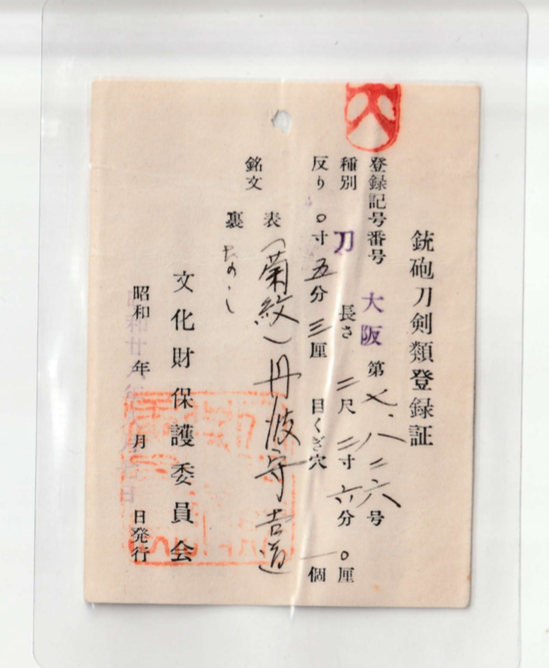 銃砲刀剣類登録証
登録記号番号 大阪 第七、八二六号
種別 刀 長さ 二尺二寸六分〇厘
反り 〇寸五分三厘 目くぎ穴 一個
銘文 表 (菊紋)丹波守吉道
裏
文化財保護委員会
昭和 年 月 日発行